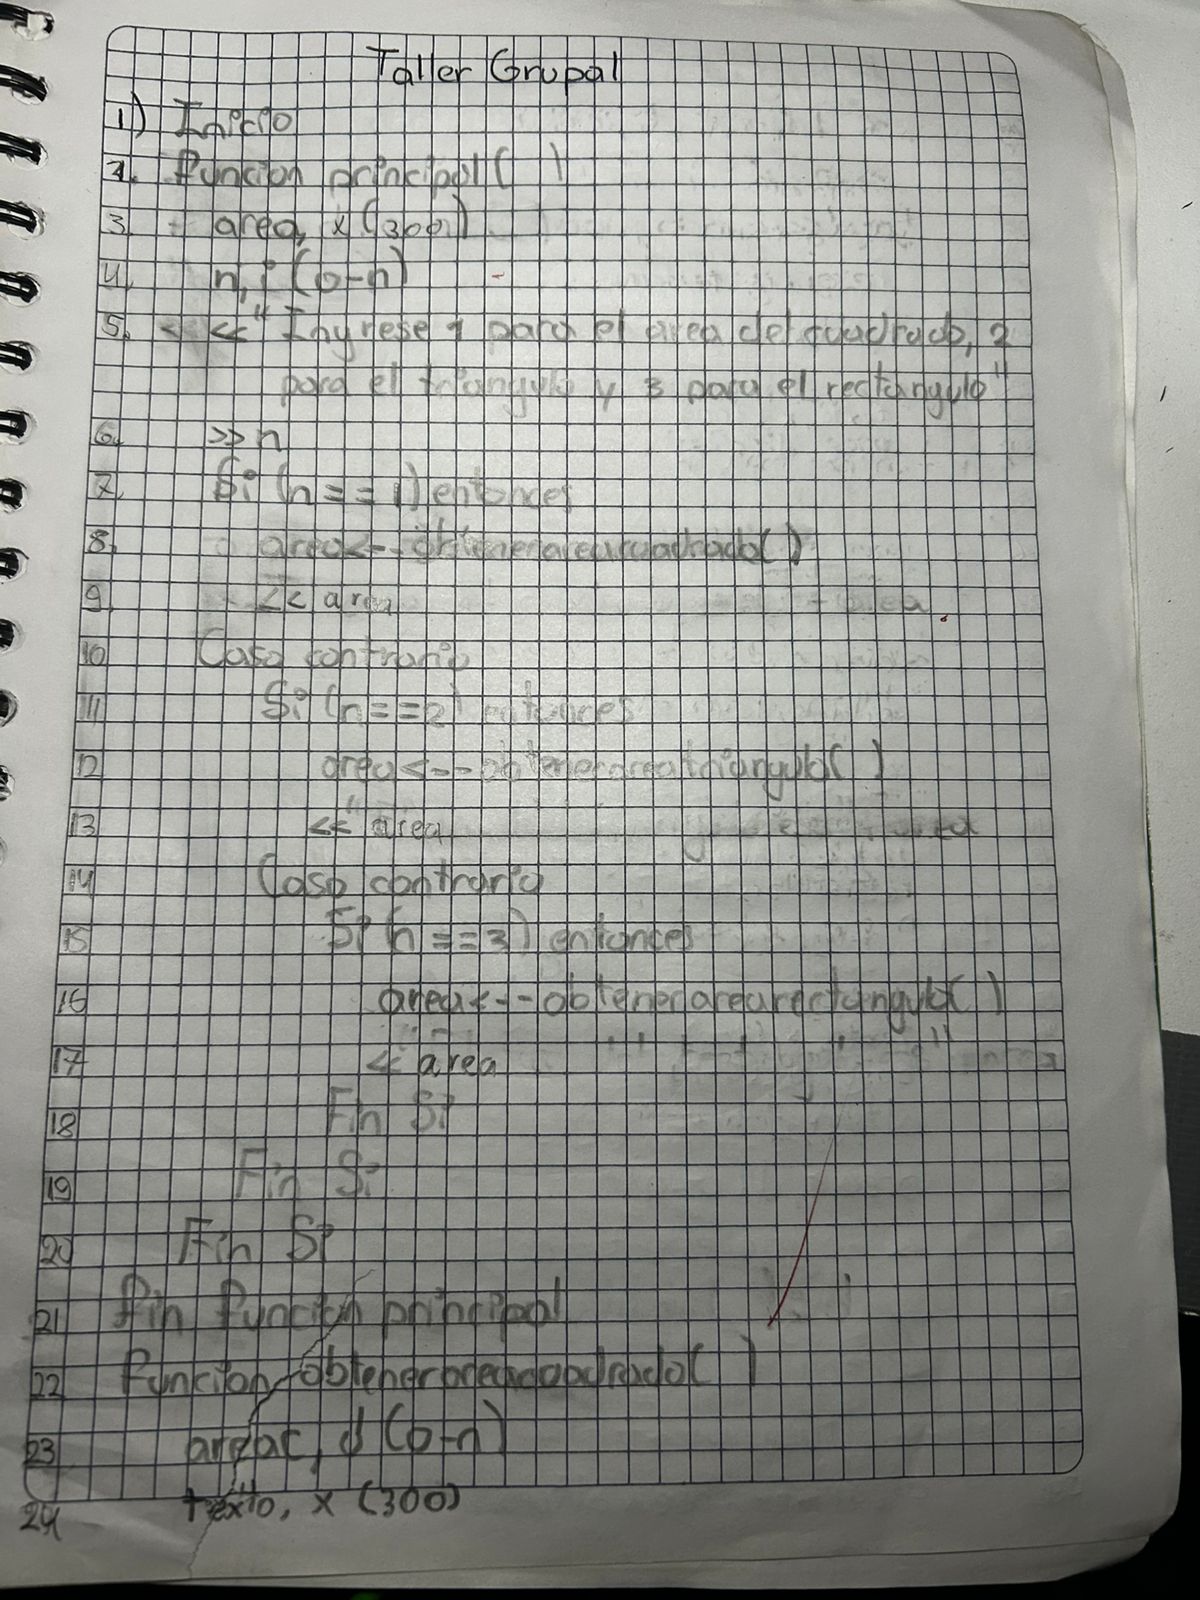 Taller Grupal
1) Inicio
2. funcion principal( )
3. area, x (300)
4. n, i (0-n)
5. << "Ingrese 1 para el area del cuadrado, 2
para el triangulo y 3 para el rectangulo"
6. >> n
7. Si (n==1) entonces
8. area<--obtenerareacuadrado( )
9. << area
10 Caso contrario
11 Si (n==2) entonces
12 area<--obtenerareatriangulo( )
13 << area
14 Caso contrario
15 Si (n==3) entonces
16 area<--obtenerarearectangulo( )
17 << area
18 Fin Si
19 Fin Si
20 Fin Si
21 fin funcion principal
22 funcion obtenerareacuadrado( )
23 areac, d (0-n)
24 texto, x (300)